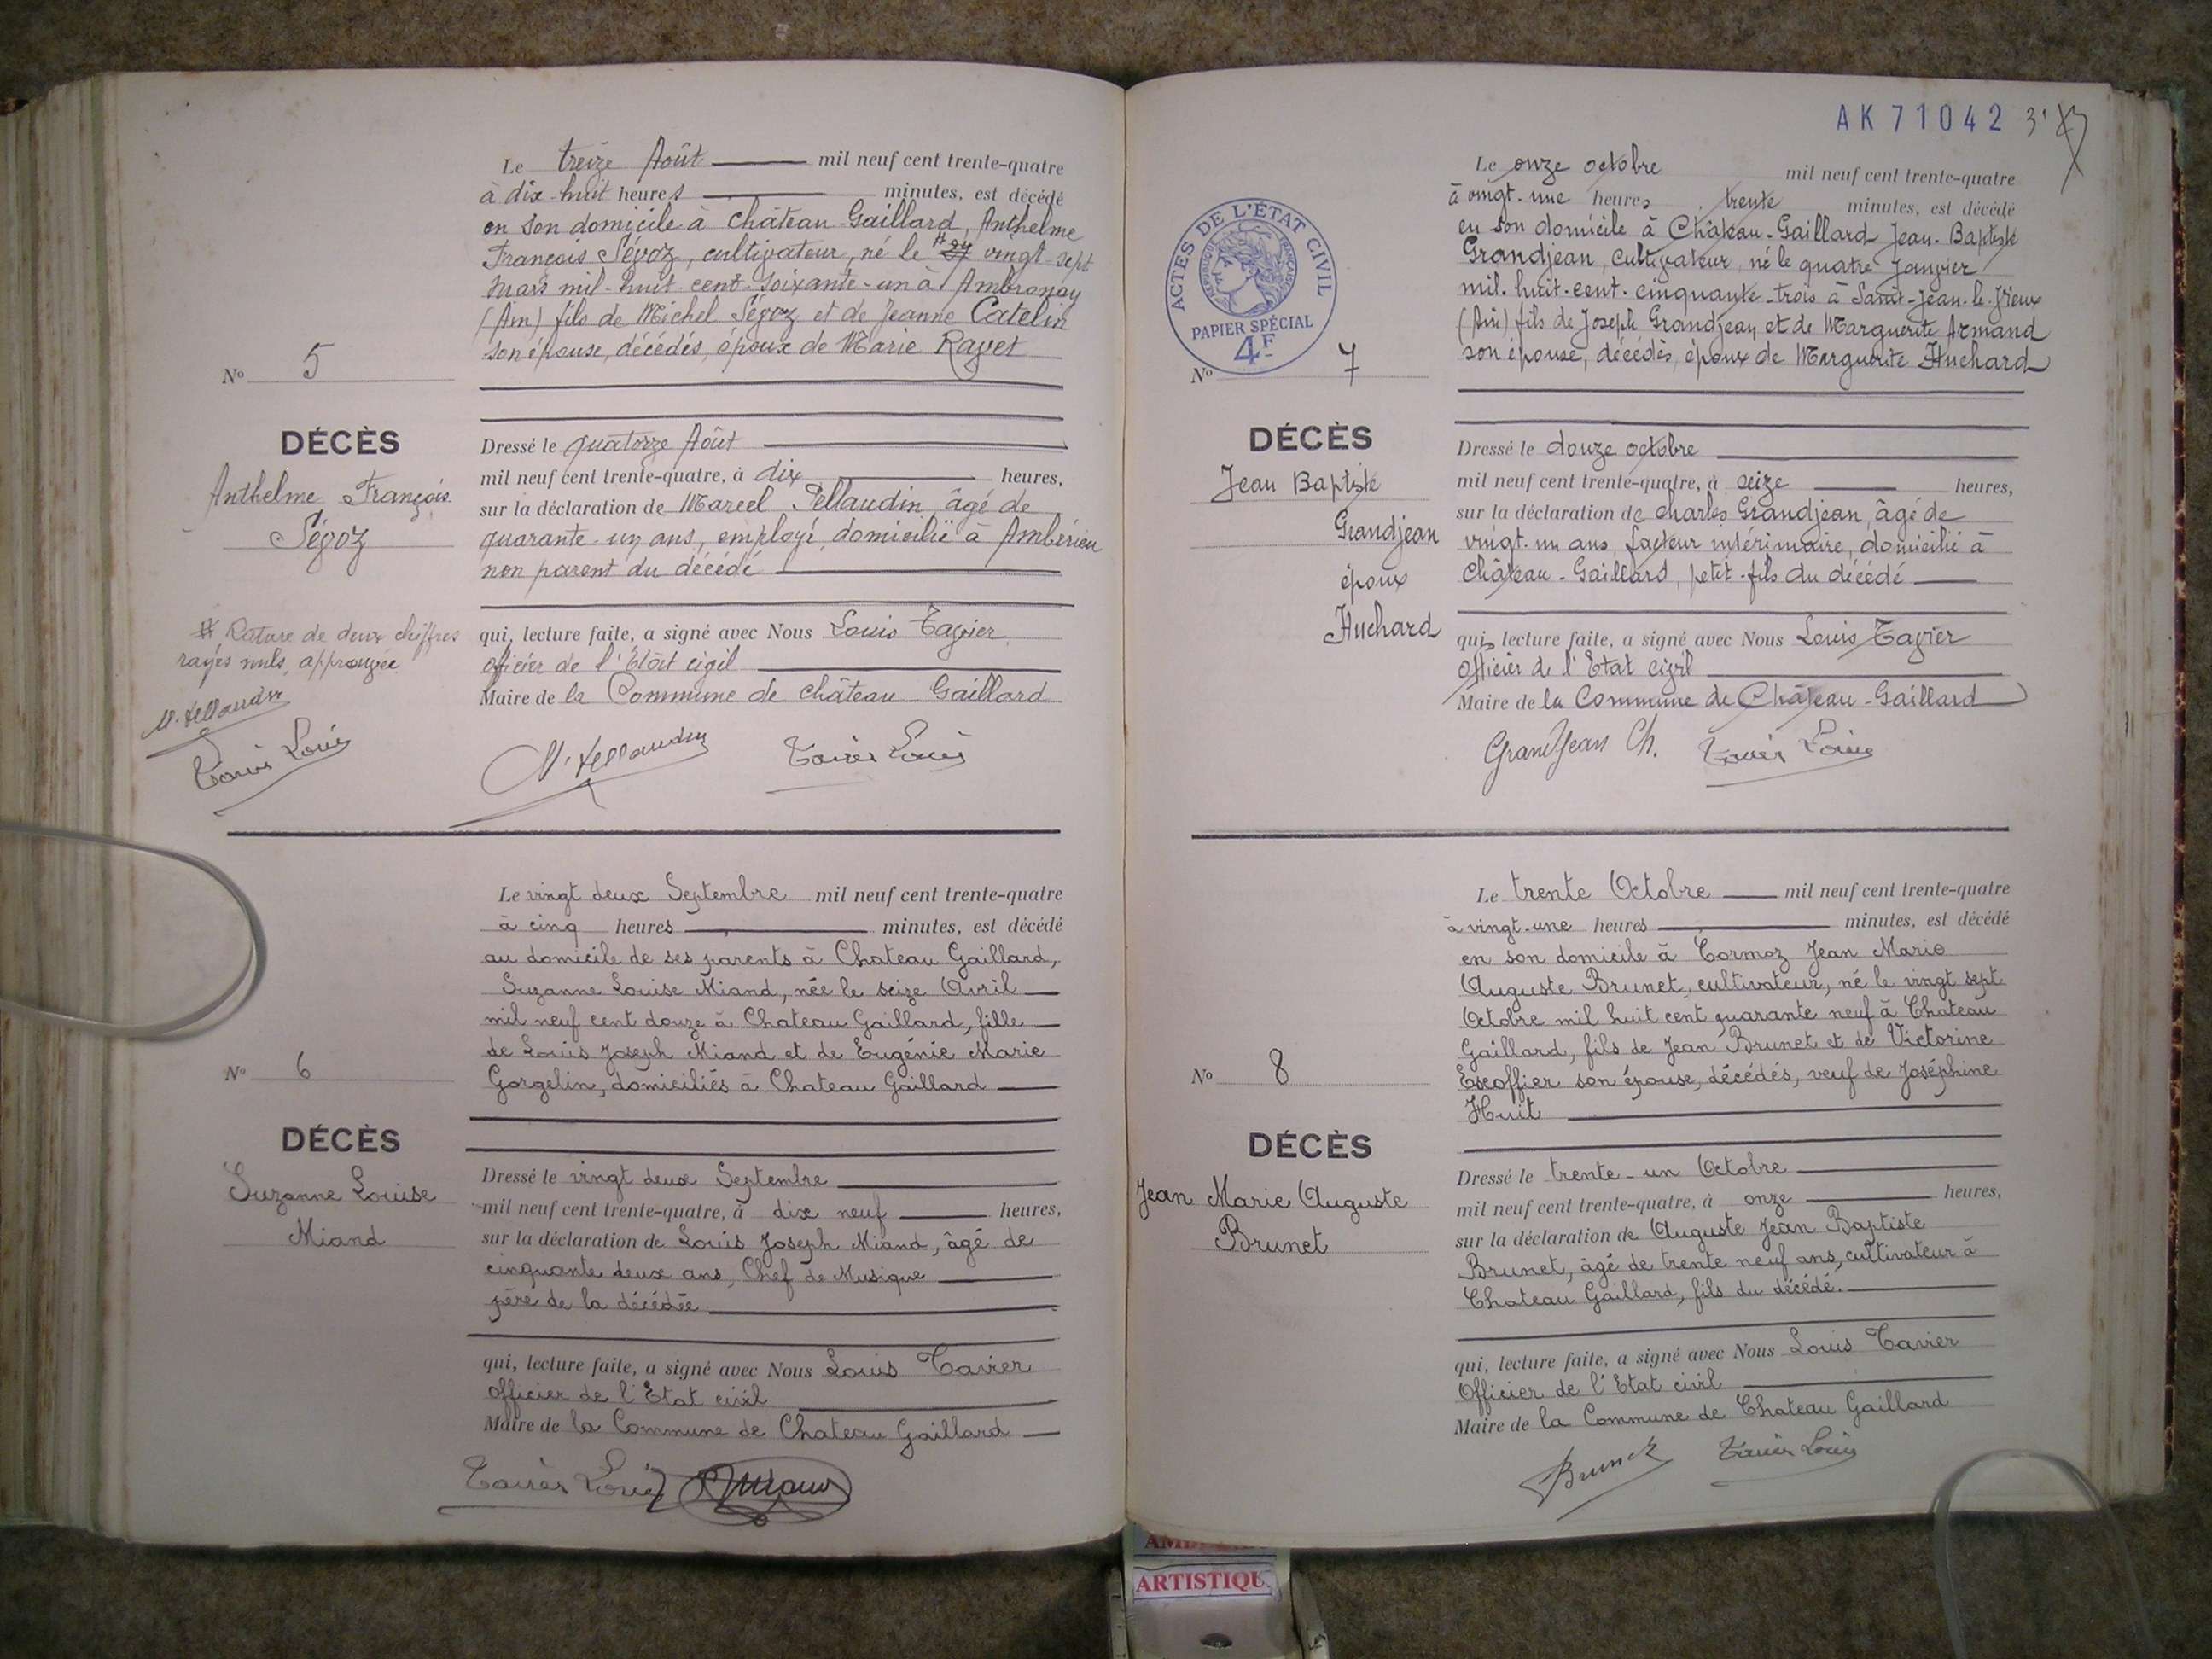 Le treize Août mil neuf cent trente-quatre
à dix-huit heures minutes, est décédé
en son domicile à Château-Gaillard, Anthelme
François Ségoz, cultivateur, né le # 27 vingt-sept
mars mil-huit cent-soixante-un à Ambronay
(Ain) fils de Michel Ségoz et de Jeanne Catelin
son épouse, décédés, époux de Marie Ravet
No 5
DÉCÈS
Anthelme François
Ségoz
Dressé le quatorze Août
mil neuf cent trente-quatre, à dix heures,
sur la déclaration de Marcel Pellaudin, âgé de
quarante-un ans, employé, domicilié à Ambérieu
non parent du décédé
# Rature de deux chiffres
rayés nuls, approuvée
qui, lecture faite, a signé avec Nous Louis Tavier
officier de l'Etat civil
Maire de la Commune de Château Gaillard
Tavier Louis
Tavier Louis
Le vingt deux Septembre mil neuf cent trente-quatre
à cinq heures minutes, est décédé
au domicile de ses parents à Chateau Gaillard,
Suzanne Louise Miand, née le seize Avril
mil neuf cent douze à Chateau Gaillard, fille
de Louis Joseph Miand et de Eugénie Marie
Gorgelin, domiciliés à Chateau Gaillard
No 6
DÉCÈS
Suzanne Louise
Miand
Dressé le vingt deux Septembre
mil neuf cent trente-quatre, à dix neuf heures,
sur la déclaration de Louis Joseph Miand, âgé de
cinquante deux ans, Chef de Musique
père de la décédée
qui, lecture faite, a signé avec Nous Louis Tavier
Officier de l'Etat civil
Maire de la Commune de Chateau Gaillard
Tavier Louis
AK 71042
Le onze octobre mil neuf cent trente-quatre
à vingt-une heures trente minutes, est décédé
en son domicile à Château-Gaillard Jean-Baptiste
Grandjean, cultivateur, né le quatre Janvier
mil-huit-cent-cinquante-trois à Saint-Jean-le-Vieux
(Ain) fils de Joseph Grandjean et de Marguerite Armand
son épouse, décédés, époux de Marguerite Huchard
ACTES DE L'ÉTAT CIVIL
RÉPUBLIQUE FRANÇAISE
PAPIER SPÉCIAL
4F
No 7
DÉCÈS
Jean Baptiste
Grandjean
époux
Huchard
Dressé le douze octobre
mil neuf cent trente-quatre, à seize heures,
sur la déclaration de charles Grandjean, âgé de
vingt-un ans, facteur intérimaire, domicilié à
Château-Gaillard, petit-fils du décédé
qui, lecture faite, a signé avec Nous Louis Tavier
Officier de l'Etat civil
Maire de la Commune de Château-Gaillard
Grandjean Ch. Tavier Louis
Le trente Octobre mil neuf cent trente-quatre
à vingt-une heures minutes, est décédé
en son domicile à Cormoz Jean Marie
Auguste Brunet, cultivateur, né le vingt sept
Octobre mil huit cent quarante neuf à Chateau
Gaillard, fils de Jean Brunet et de Victorine
Escoffier son épouse, décédés, veuf de Joséphine
Huit
No 8
DÉCÈS
Jean Marie Auguste
Brunet
Dressé le trente-un Octobre
mil neuf cent trente-quatre, à onze heures,
sur la déclaration de Auguste Jean Baptiste
Brunet, âgé de trente neuf ans, cultivateur à
Chateau Gaillard, fils du décédé.
qui, lecture faite, a signé avec Nous Louis Tavier
Officier de l'Etat civil
Maire de la Commune de Chateau Gaillard
Brunet Tavier Louis
ARTISTIQU